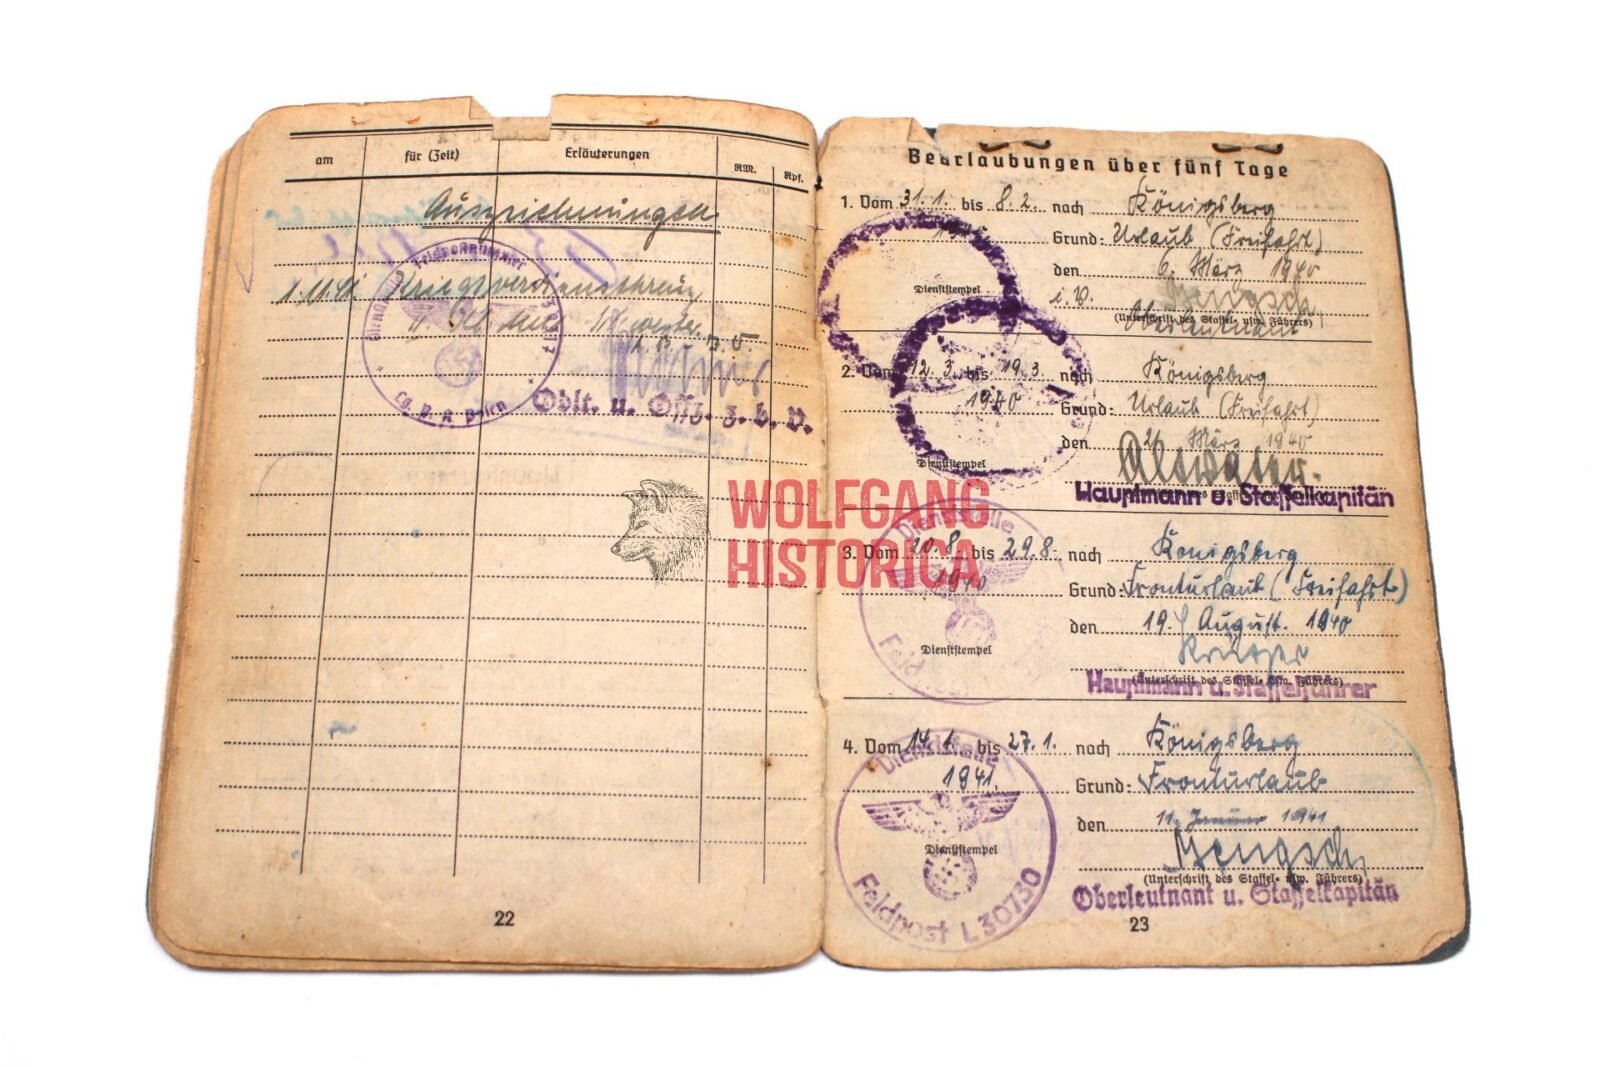 am für (Zeit) Erläuterungen RM. Rpf.
Auszeichnungen
1.11.41 Kriegsverdienstkreuz
Oblt. u. Offz. z. b. V.
22
WOLFGANG
HISTORICA
Beurlaubungen über fünf Tage
1. Vom 31.1. bis 8.2. nach Königsberg
Grund: Urlaub (Freifahrt)
den 6. März 1940
Dienststempel
i.V.
(Unterschrift des Staffel- usw. Führers)
2. Vom 12.3. bis 19.3. nach Königsberg
1940 Grund: Urlaub (Freifahrt)
den 21. März 1940
Dienststempel
Hauptmann u. Staffelkapitän
3. Vom 20.8. bis 29.8. nach Königsberg
1940 Grund: Fronturlaub (Freifahrt)
den 19. August. 1940
Dienststempel
(Unterschrift des Staffel- usw. Führers)
Hauptmann u. Staffelführer
Dienststelle
Feld
4. Vom 14.1. bis 27.1. nach Königsberg
1941. Grund: Fronturlaub
den 11. Januar 1941
Dienststempel
(Unterschrift des Staffel- usw. Führers)
Oberleutnant u. Staffelkapitän
Dienststelle
Feldpost L 30730
23